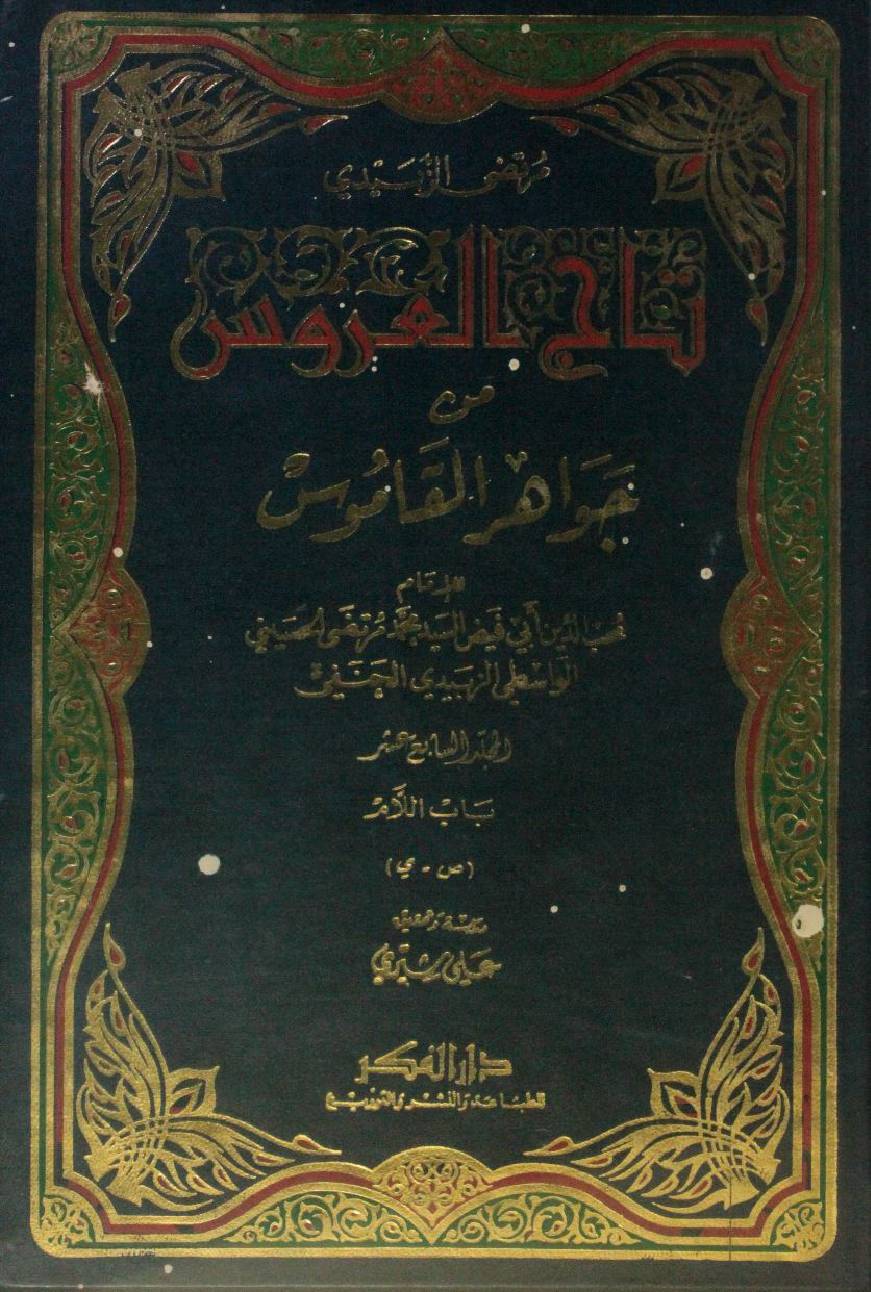 مرتضى الزَّبَيْدي
تاج العروس
من
جَوَاهر القَامُوسْ
للإمَام
محبّ الدين أبي فيض السيد محمَّد مُرتضَى الحسَيني
الواسطي الزبيدي الحَنَفي
المجلد السابع عشر
بَابْ اللَّامْ
(ص - ي)
دراسة وتحقيق
عَلي شِيْري
دار الفكر
للطباعة والنشر والتوزيع